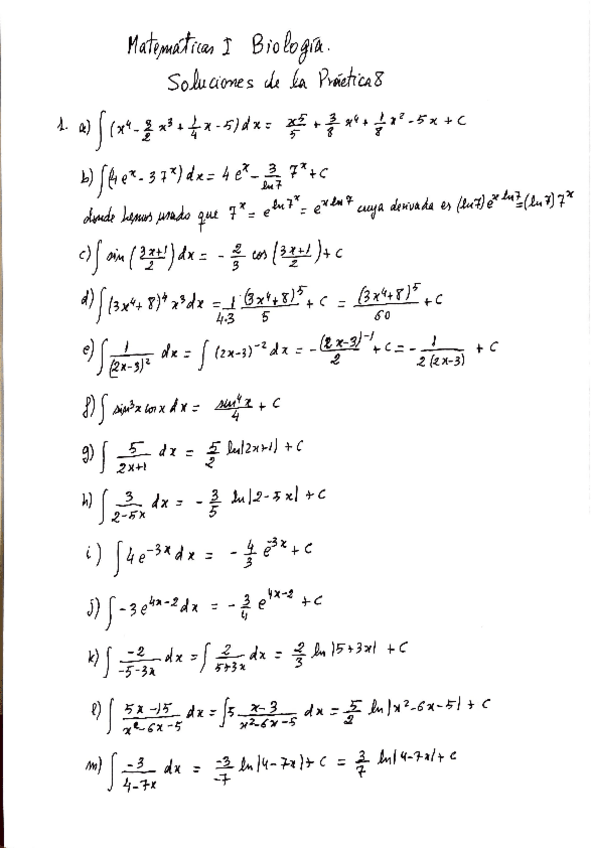 Matemáticas I Biología.
Soluciones de la Práctica 8
1. a) ∫(x⁴ - 3/2 x³ + 1/4 x - 5) dx = x⁵/5 + 3/8 x⁴ + 1/8 x² - 5x + C
b) ∫(4eˣ - 3 7ˣ) dx = 4eˣ - 3/ln7 7ˣ + C
donde hemos usado que 7ˣ = e^{ln 7ˣ} = e^{x ln 7} cuya derivada es (ln 7) e^{x ln 7} = (ln 7) 7ˣ
c) ∫ sin((3x+1)/2) dx = - 2/3 cos((3x+1)/2) + C
d) ∫(3x⁴+8)⁴ x³ dx = 1/(4·3) (3x⁴+8)⁵/5 + C = (3x⁴+8)⁵/60 + C
e) ∫ 1/(2x-3)² dx = ∫ (2x-3)⁻² dx = - (2x-3)⁻¹/2 + C = - 1/(2(2x-3)) + C
f) ∫ sin³x cos x dx = sin⁴x/4 + C
g) ∫ 5/(2x+1) dx = 5/2 ln|2x+1| + C
h) ∫ 3/(2-5x) dx = - 3/5 ln|2-5x| + C
i) ∫ 4e^{-3x} dx = - 4/3 e^{-3x} + C
j) ∫ -3e^{4x-2} dx = - 3/4 e^{4x-2} + C
k) ∫ -2/(-5-3x) dx = ∫ 2/(5+3x) dx = 2/3 ln|5+3x| + C
l) ∫ (5x-15)/(x²-6x-5) dx = ∫ 5 (x-3)/(x²-6x-5) dx = 5/2 ln|x²-6x-5| + C
m) ∫ -3/(4-7x) dx = -3/-7 ln|4-7x| + C = 3/7 ln|4-7x| + C